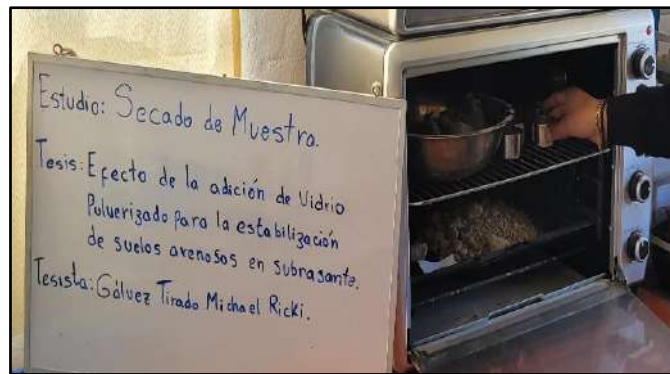 Estudio: Secado de Muestra.
Tesis: Efecto de la adición de Vidrio
Pulverizado para la estabilización
de suelos arenosos en subrasante.
Tesista: Gálvez Tirado Michael Ricki.